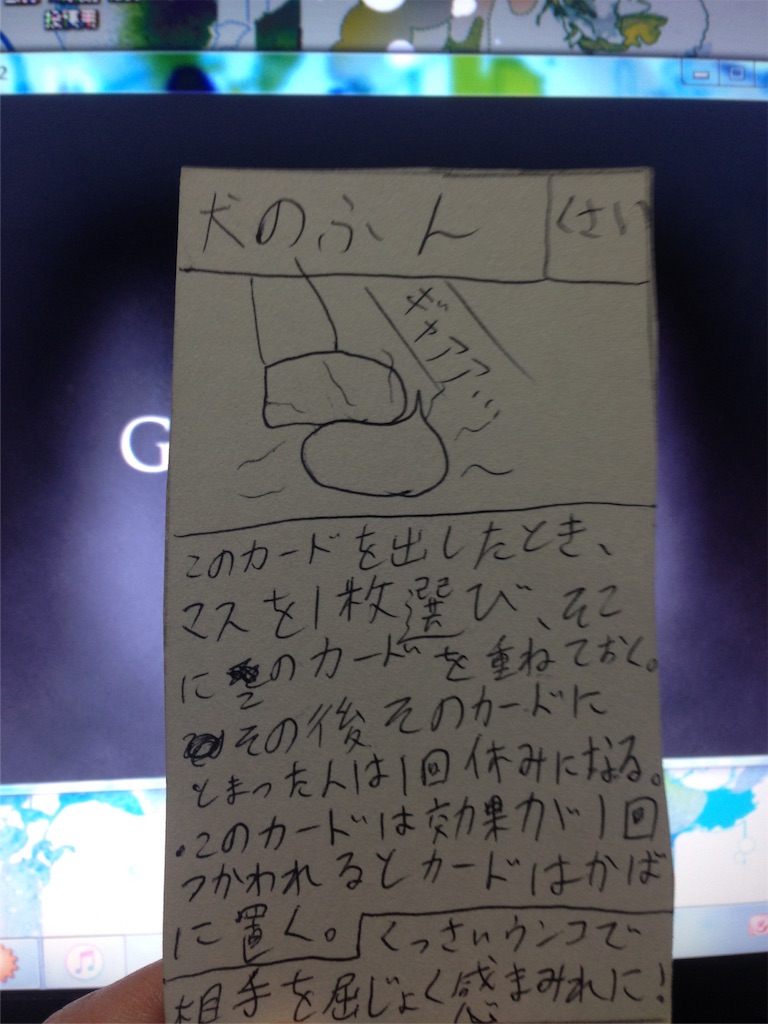 投票用
2
犬のふん
くさい
ギャアアア
G
このカードを出したとき、
マスを1枚選び、そこ
にこのカードを重ねておく。
その後そのカードに
とまった人は1回休みになる。
・このカードは効果が1回
つかわれるとカードはかば
に置く。
くっさいウンコで
相手を屈じょく感まみれに!